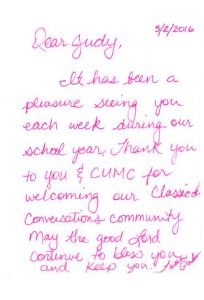 5/2/2016
Dear Judy,
It has been a
pleasure seeing you
each week during our
school year. Thank you
to you & CUMC for
welcoming our Classical
Conversations community
May the good Lord
continue to bless you
and keep you.